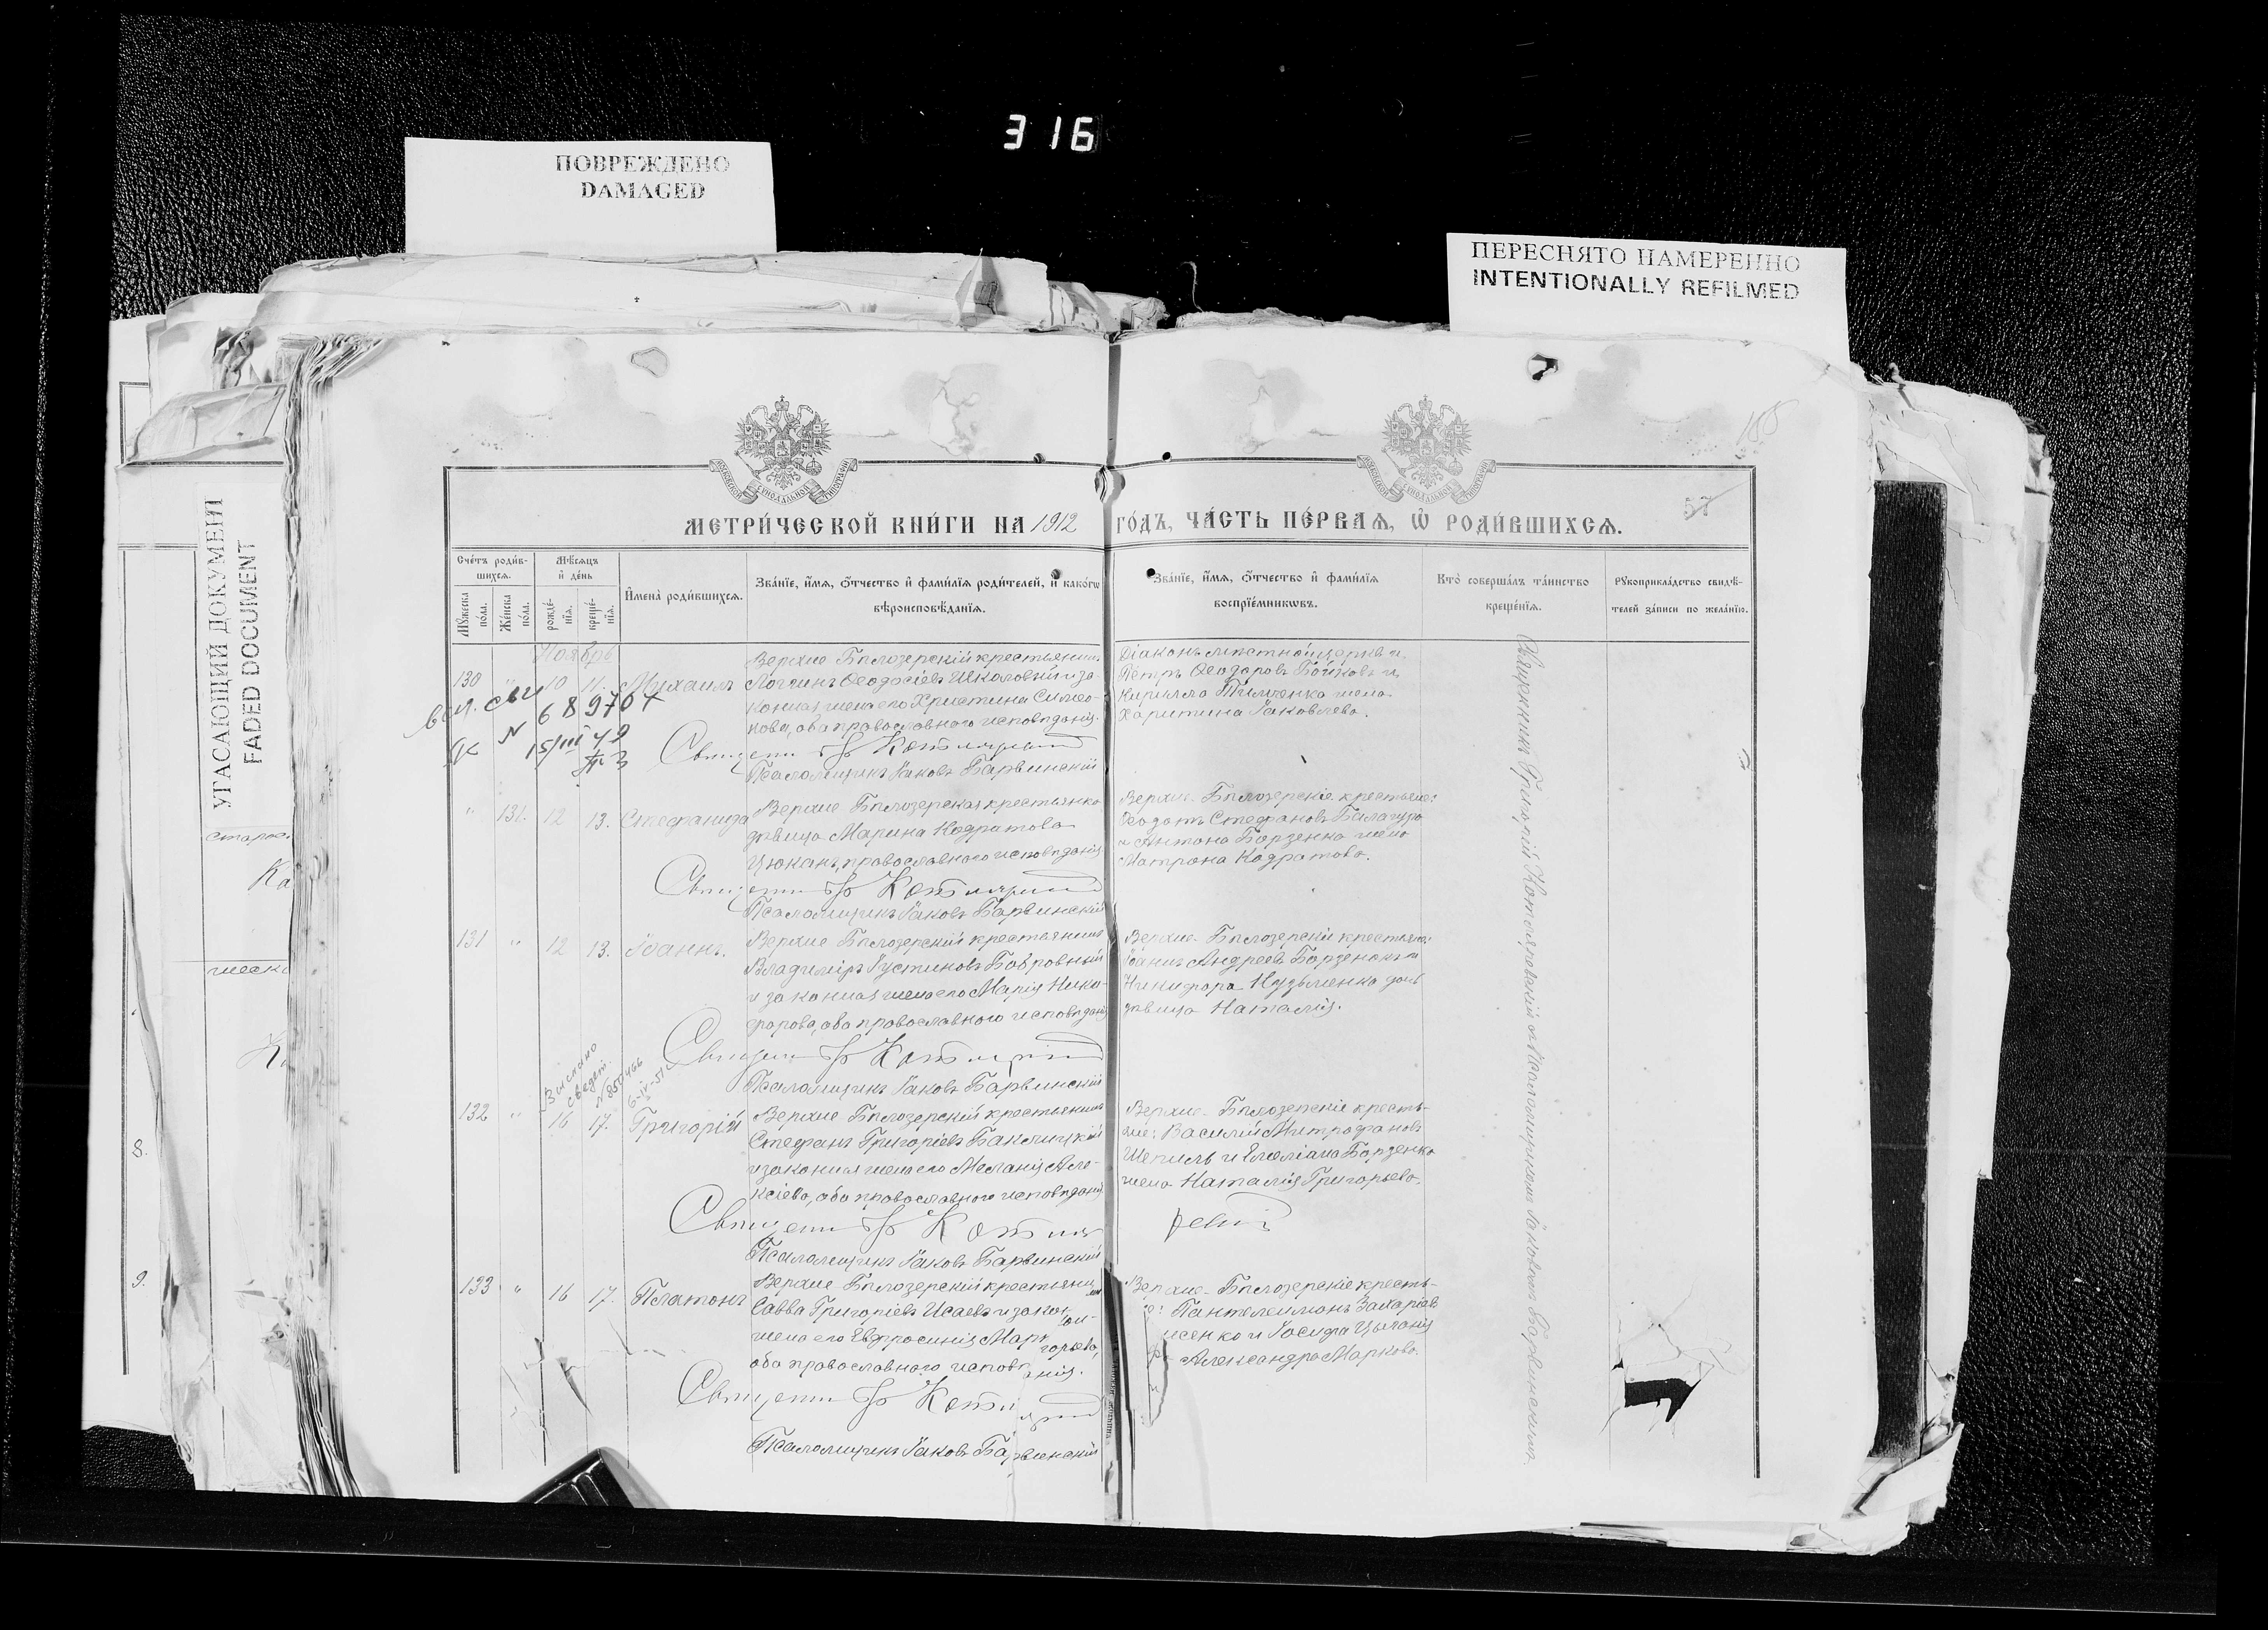 316
ПОВРЕЖДЕНО
DAMAGED
ПЕРЕСНЯТО НАМЕРЕННО
INTENTIONALLY REFILMED
УГАСАЮЩИЙ ДОКУМЕНТ
FADED DOCUMENT
57
МЕТРИ́ЧЕСКОЙ КНИ́ГИ НА 1912 ГО́ДЪ, ЧА́СТЬ ПЕ́РВАЯ, Ѡ РОДИ́ВШИХСЯ.
Сче́тъ роди́в-
шихся.
Мѣ́сяцъ
и́ де́нь
Му́жеска по́ла.
Же́нска по́ла.
рожде́-
нїя.
креще́-
нїя.
И҆мена̀ роди́вшихся.
Зва́нїе, и҆́мя, ѻ҆́тчество и҆ фами́лїя роди́телей, и҆ како́гѡ
вѣроисповѣ́данїя.
Зва́нїе, и҆́мя, ѻ҆́тчество и҆ фами́лїя
воспрїе́мникѡвъ.
Кто̀ соверша́лъ та́инство
креще́нїя.
Рꙋкоприкла́дство свидѣ́-
телей за́писи по жела́нїю.
Ноябрь
130 " 10 11. Михаилъ
Верхне Бѣлозерскій крестьянинъ
Логгинъ Ѳеодосіевъ Школовый и за-
конная жена его Христина Симео-
нова, оба православнаго исповѣданія.
Псаломщикъ Іаковъ Барвинскій
Діаконъ мѣстной церкви
Петръ Ѳеодоровъ Бойковъ и
Кирилла Тимченка жена
Харитина Іаковлева.
689704
15/III 49
" 131. 12 13. Стефанида
Верхне Бѣлозерская крестьянка
дѣвица Марина Кодратова
Цюканъ, православнаго исповѣданія
Псаломщикъ Іаковъ Барвинскій
Верхне-Бѣлозерскіе крестьяне:
Ѳеодотъ Стефановъ Балагура
и Антона Борзенка жена
Матрона Кодратова.
131 " 12 13. Іоаннъ.
Верхне Бѣлозерскій крестьянинъ
Владиміръ Іустиновъ Бобровный
и законная жена его Марія Ники-
форова, оба православнаго исповѣданія
Псаломщикъ Іаковъ Барвинскій
Верхне-Бѣлозерскіе крестьяне:
Іоаннъ Андреевъ Борзенокъ и
Никифора Кузьменка дочь
дѣвица Наталія.
Выслано
свидет.
N 850466
6-IV-51
132 " 16 17. Григорій
Верхне Бѣлозерскій крестьянинъ
Стефанъ Григоріевъ Баклицкій
и законная жена его Меланія Але-
ксіева, оба православнаго исповѣданія.
Псаломщикъ Іаковъ Барвинскій
Верхне-Бѣлозерскіе кресть-
яне: Василій Митрофановъ
Шепиль и Емеліана Борзенка
жена Наталія Григорьева.
133 " 16 17. Платонъ
Верхне Бѣлозерскій крестьянинъ
Савва Григоріевъ Исаевъ и закон-
жена его Евфросинія
оба православнаго исповѣданія.
Псаломщикъ Іаковъ Барвинскій
Верхне-Бѣлозерскіе кресть-
Пантелеимонъ Захаріевъ
и Іосифа
Александра Маркова.
Священникъ Григорій Котляревскій съ Псаломщикомъ Іаковомъ Барвинскимъ.
8.
9.